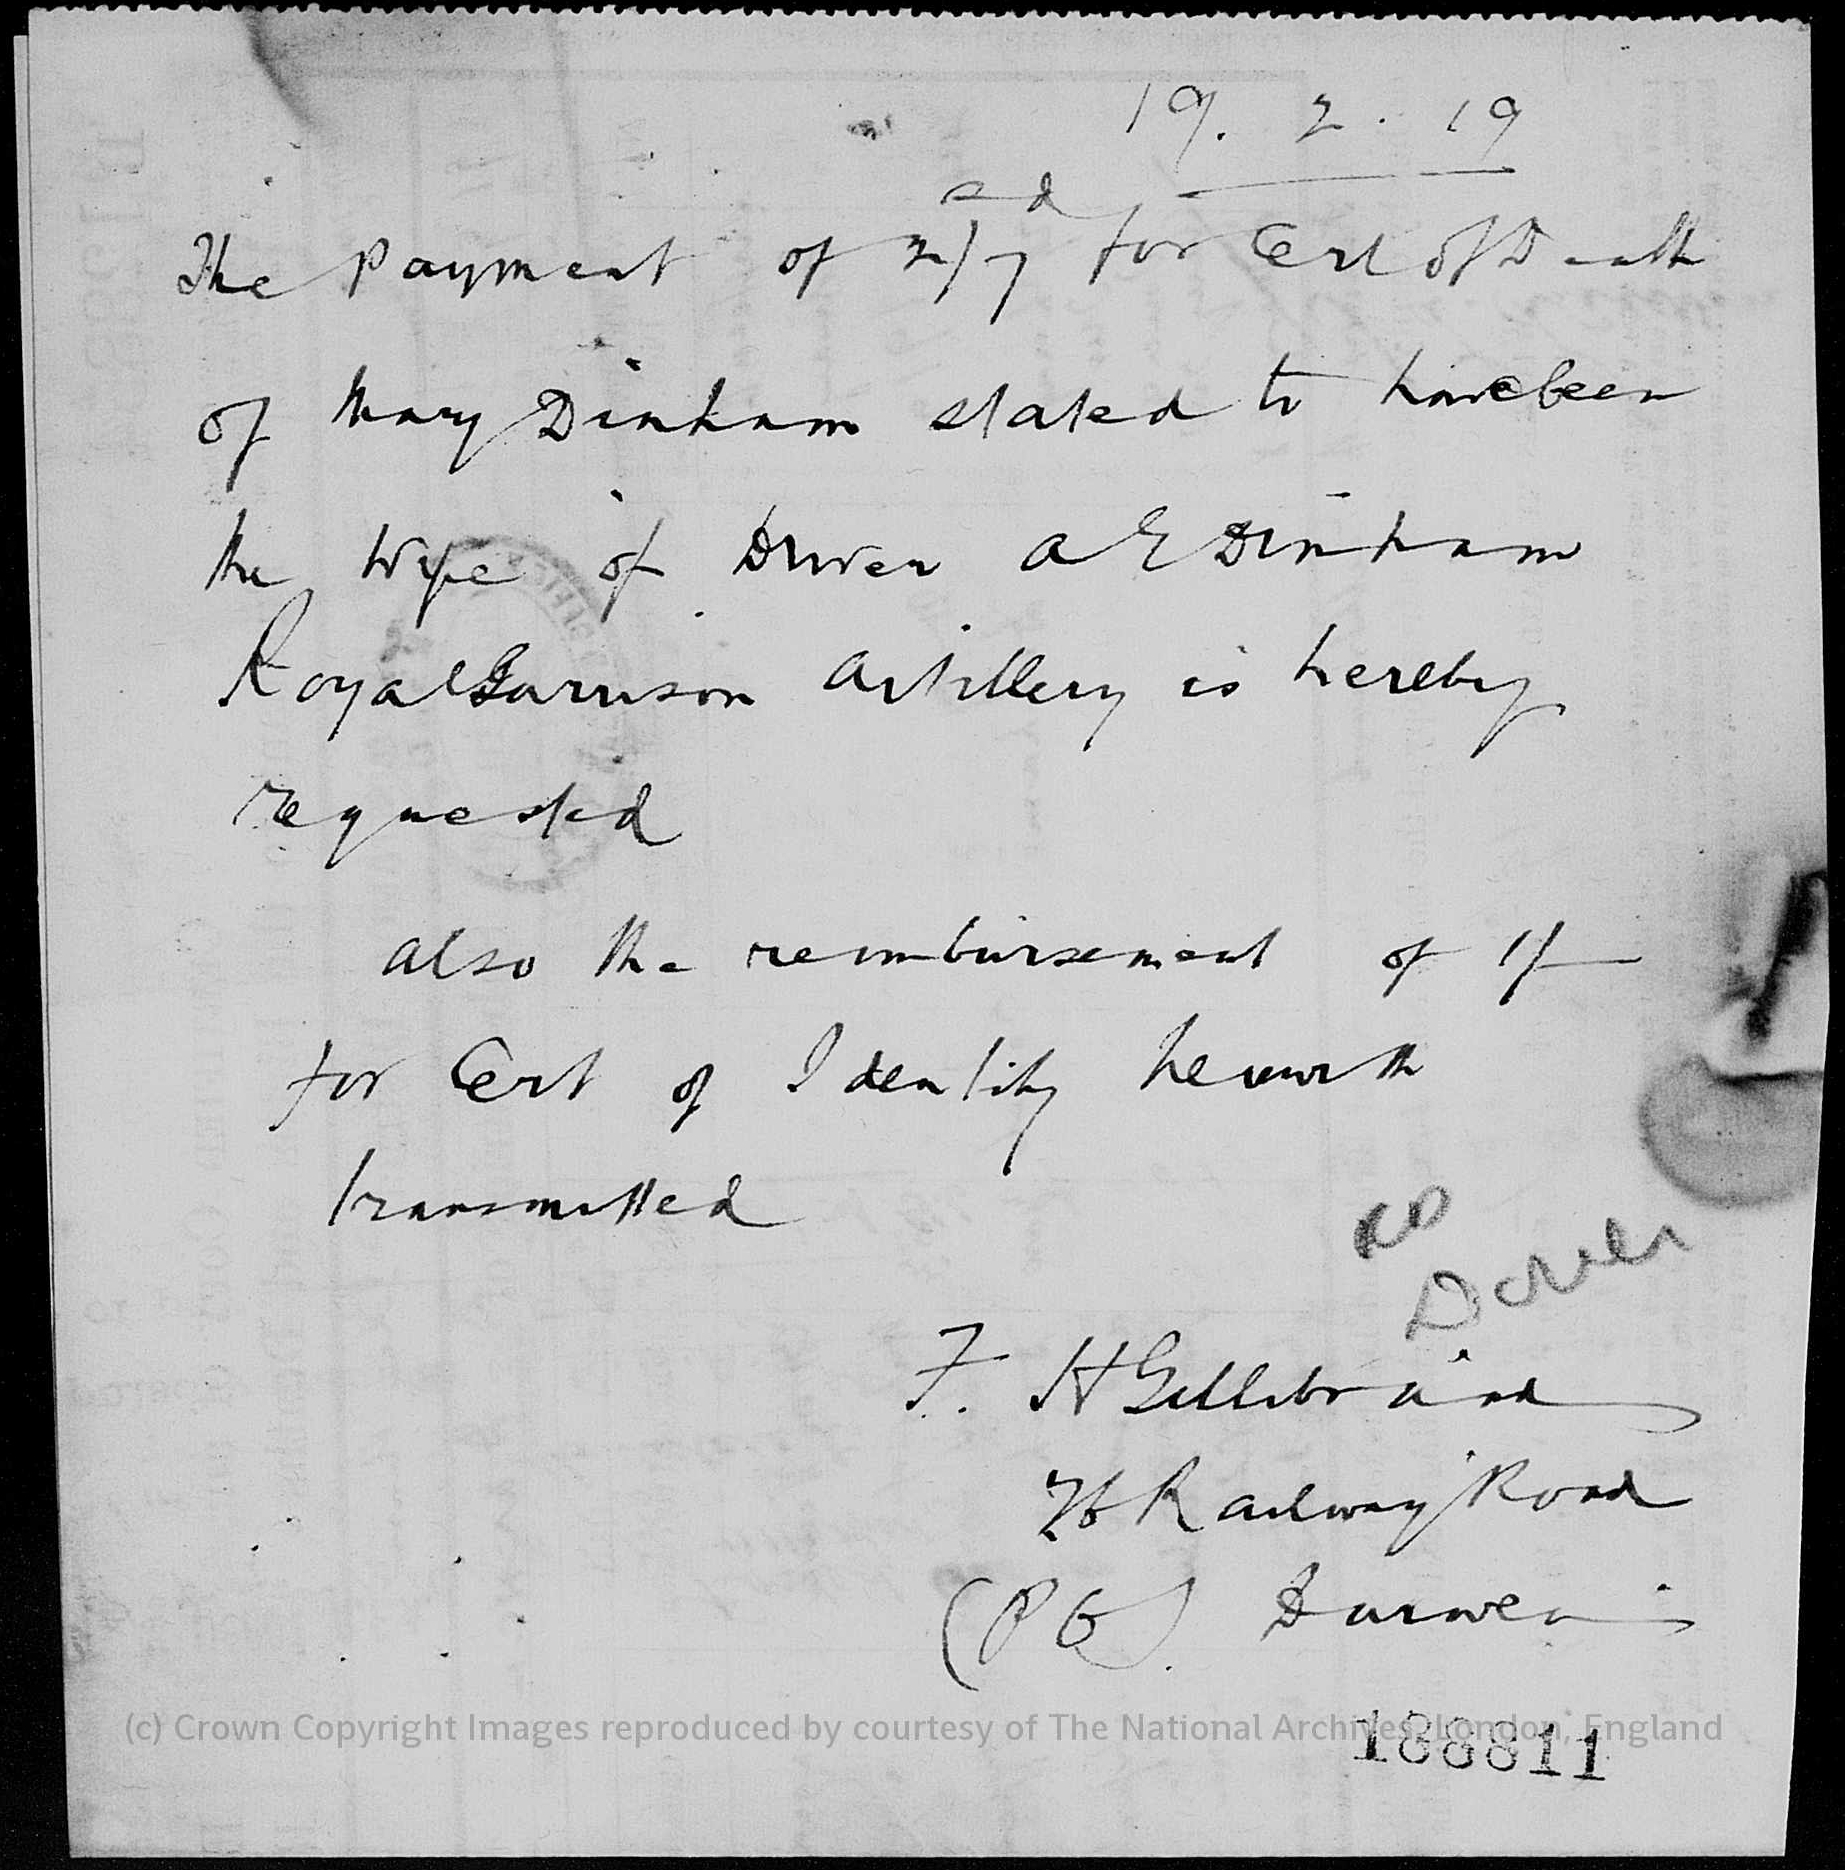 19. 2. 19
s d
The Payment of 2/7 for Cert of Death
of Mary Dinham stated to have been
the Wife of Driver A E Dinham
Royal Garrison Artillery is hereby
requested
also the reimbursement of 1/-
for Cert of Identity herewith
transmitted
RD
F. H Gillibrand
76 Railway Road
(P O) Darwen
138811
(c) Crown Copyright Images reproduced by courtesy of The National Archives, London, England